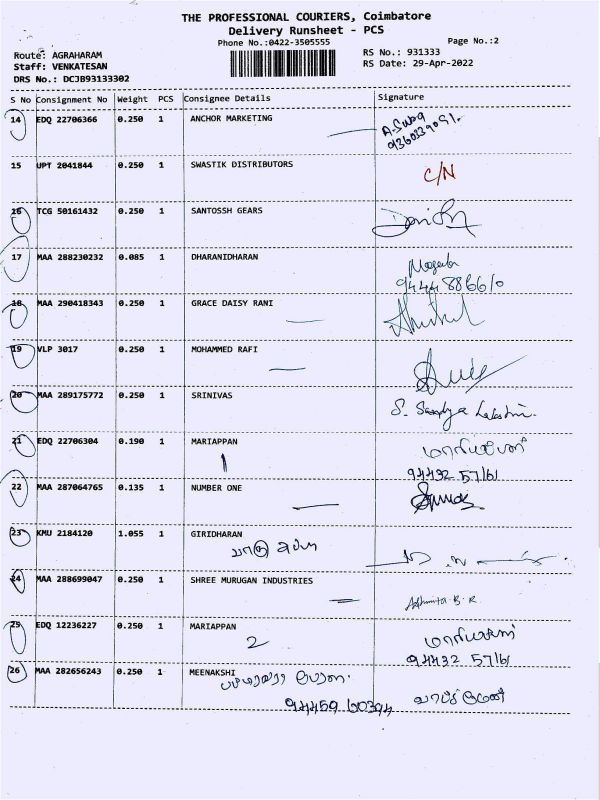 THE PROFESSIONAL COURIERS, Coimbatore
Delivery Runsheet - PCS
Phone No.:0422-3505555
Page No.:2
Route: AGRAHARAM
RS No.: 931333
Staff: VENKATESAN
RS Date: 29-Apr-2022
DRS No.: DCJB93133302
S No Consignment No Weight PCS Consignee Details Signature
14 EDQ 22706366 0.250 1 ANCHOR MARKETING
15 UPT 2041844 0.250 1 SWASTIK DISTRIBUTORS C/N
16 TCG 50161432 0.250 1 SANTOSSH GEARS
17 MAA 288230232 0.085 1 DHARANIDHARAN
9444886610
18 MAA 290418343 0.250 1 GRACE DAISY RANI
19 VLP 3017 0.250 1 MOHAMMED RAFI
20 MAA 289175772 0.250 1 SRINIVAS
S. Sandya Lakshmi.
21 EDQ 22706304 0.190 1 MARIAPPAN மாரியப்பன்
1 94432 57161
22 MAA 287064765 0.135 1 NUMBER ONE
23 KMU 2184120 1.055 1 GIRIDHARAN
24 MAA 288699047 0.250 1 SHREE MURUGAN INDUSTRIES
Ashmita B.R.
25 EDQ 12236227 0.250 1 MARIAPPAN மாரியப்பன்
2 94432 57161
26 MAA 282656243 0.250 1 MEENAKSHI
94459 60394